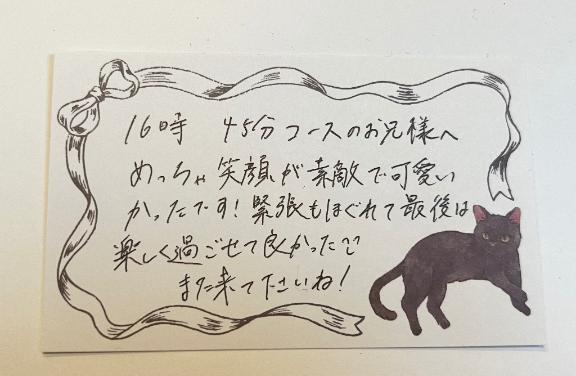 16時 45分コースのお兄様へ
めっちゃ笑顔が素敵で可愛い
かったです！緊張もほぐれて最後は
楽しく過ごせて良かった
また来て下さいね！